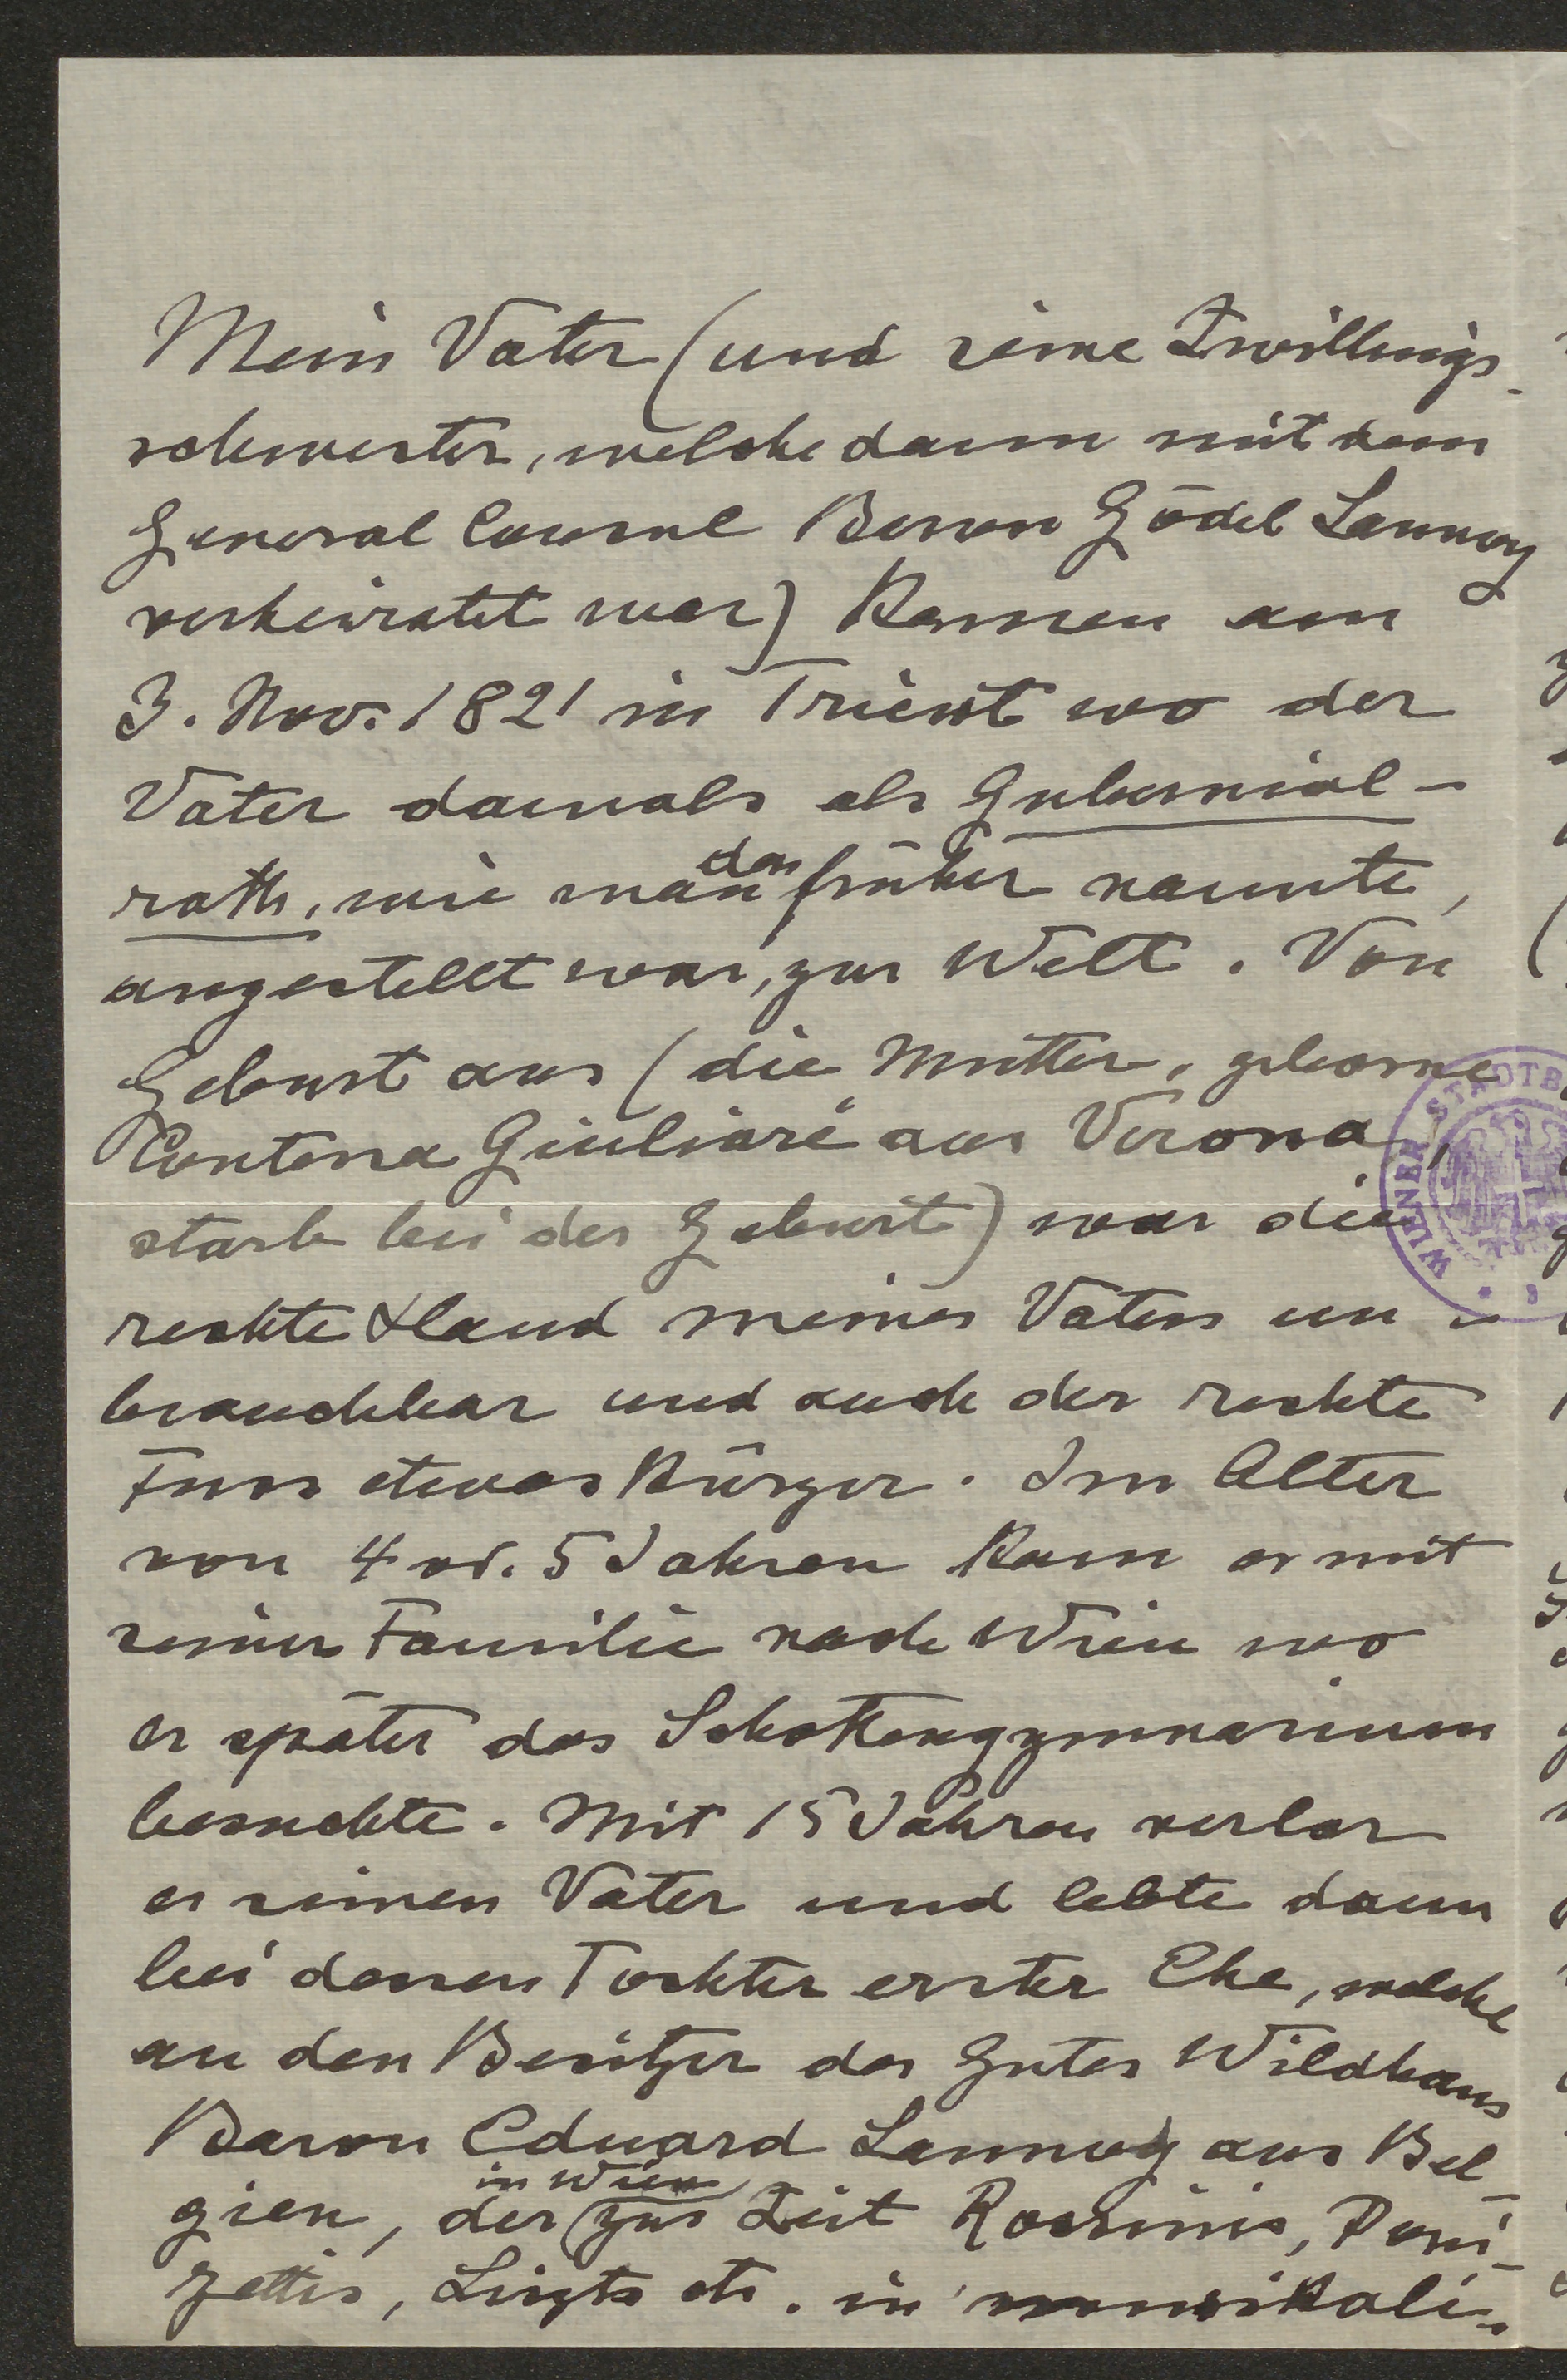 Mein Vater (und seine Zwillings-
schwester, welche dann mit dem
General Consul Baron Gödel Lannoy
verheiratet war) kamen am
3. Nov. 1821 in Triest wo der
Vater damals als Gubernial-
rath, wie man das früher nannte,
angestellt war, zur Welt. Von
Geburt aus (die Mutter, geborne
Contessa Giuliari aus Verona,
starb bei der Geburt) war die
rechte Hand meines Vaters un-
brauchbar und auch der rechte
Fuss etwas kürzer. Im Alter
von 4 od. 5 Jahren kam er mit
seiner Familie nach Wien wo
er später das Schottengymnasium
besuchte. Mit 15 Jahren verlor
er seinen Vater und lebte dann
bei dessen Tochter erster Ehe, welche
an den Besitzer des Gutes Wildhaus
Baron Eduard Lannoy aus Bel-
gien, der in Wien zur Zeit Rossinis, Doni-
zettis, Liszts etc. in musikali-
WIENER STADTB